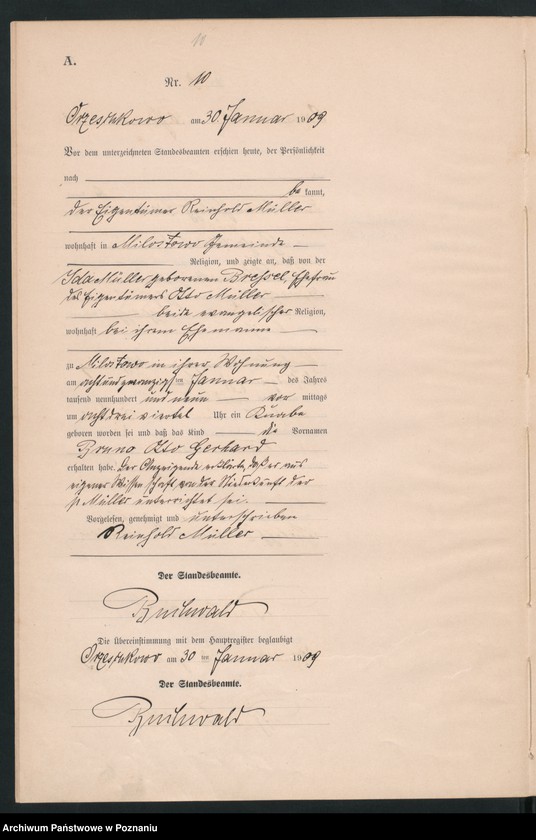 10
A.
Nr. 10
Orzeschkowo am 30 Januar 1909
Vor dem unterzeichneten Standesbeamten erschien heute, der Persönlichkeit
nach
be kannt,
der Eigentümer Reinhold Müller
wohnhaft in Milostowo Gemeinde
Religion, und zeigte an, daß von der
Ida Müller geborenen Bressel, Ehefrau
des Eigentümers Otto Müller
beide evangelischer Religion,
wohnhaft bei ihrem Ehemanne
zu Milostowo in ihrer Wohnung
am achtundzwanzigsten Januar des Jahres
tausend neunhundert und neun vor mittags
um acht drei viertel Uhr ein Knabe
geboren worden sei und daß das Kind die Vornamen
Bruno Otto Gerhard
erhalten habe. Der Anzeigende erklärte, daß er aus
eigener Wissenschaft von der Niederkunft der
p. Müller unterrichtet sei.
Vorgelesen, genehmigt und unterschrieben
Reinhold Müller
Der Standesbeamte.
Buchwald
Die Übereinstimmung mit dem Hauptregister beglaubigt
Orzeschkowo am 30 ten Januar 1909
Der Standesbeamte.
Buchwald
Archiwum Państwowe w Poznaniu